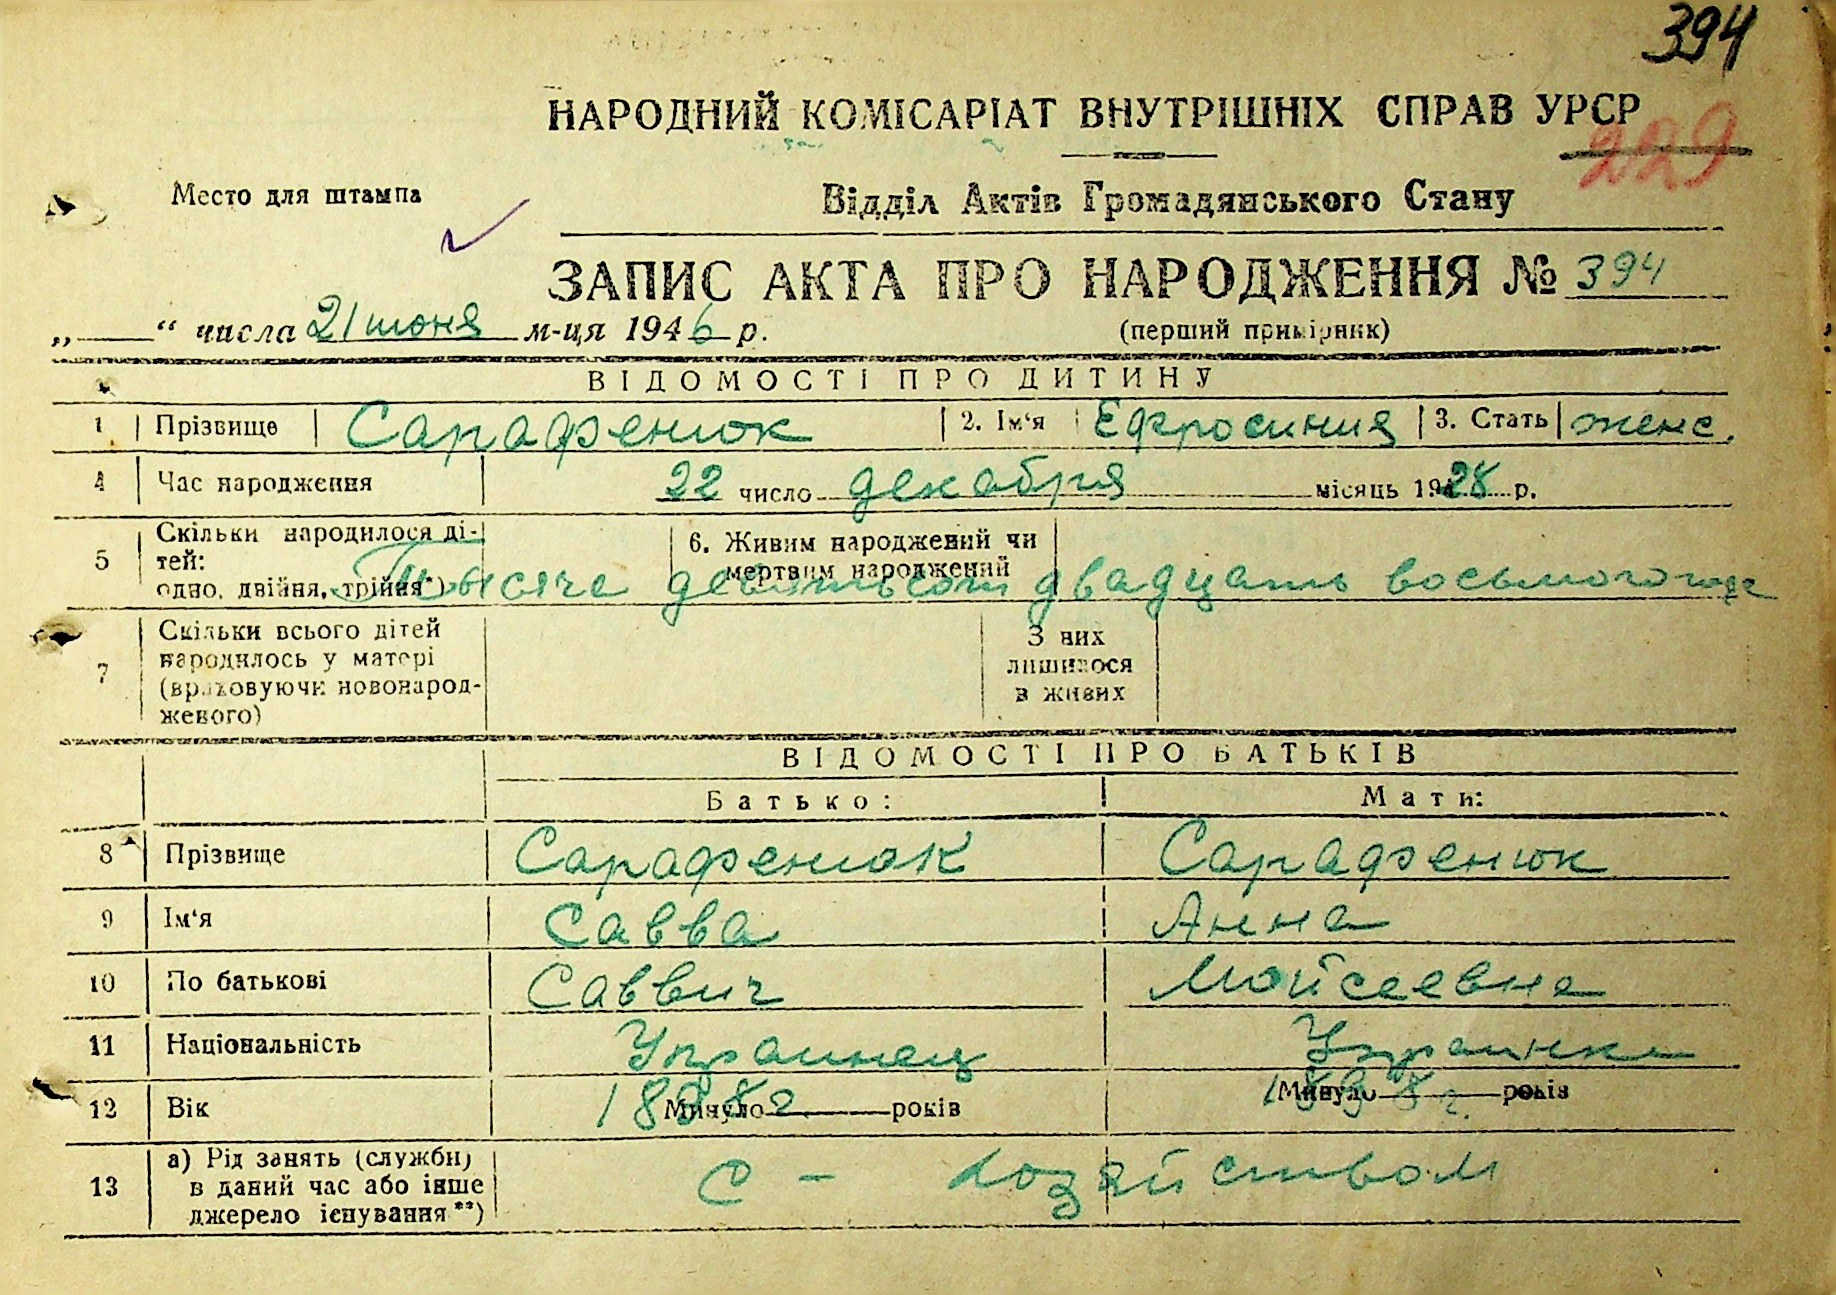 394
НАРОДНИЙ КОМІСАРІАТ ВНУТРІШНІХ СПРАВ УРСР
229
Место для штампа
Відділ Актів Громадянського Стану
ЗАПИС АКТА ПРО НАРОДЖЕННЯ № 394
„ “ числа 21 июня м-ця 1946 р.
(перший примірник)
ВІДОМОСТІ ПРО ДИТИНУ
1 Прізвище Сарафенюк 2. Ім‘я Ефросиния 3. Стать женс.
4 Час народження 22 число декабря місяць 1928 р.
5 Скільки народилося ді-
тей:
одно, двійня, трійня*)
6. Живим народжений чи
мертвим народжений
Тысяче девятьсот двадцать восьмого годе
7 Скільки всього дітей
народилось у матері
(враховуючи новонарод-
женого)
З них
лишилося
в живих
ВІДОМОСТІ ПРО БАТЬКІВ
Батько: Мати:
8 Прізвище Сарафенюк Сарафенюк
9 Ім‘я Савва Анна
10 По батькові Саввич Мойсеевна
11 Національність Украинец Украинка
12 Вік Минуло років Минуло років
13 а) Рід занять (служби)
в даний час або інше
джерело існування**)
С - хозяйством